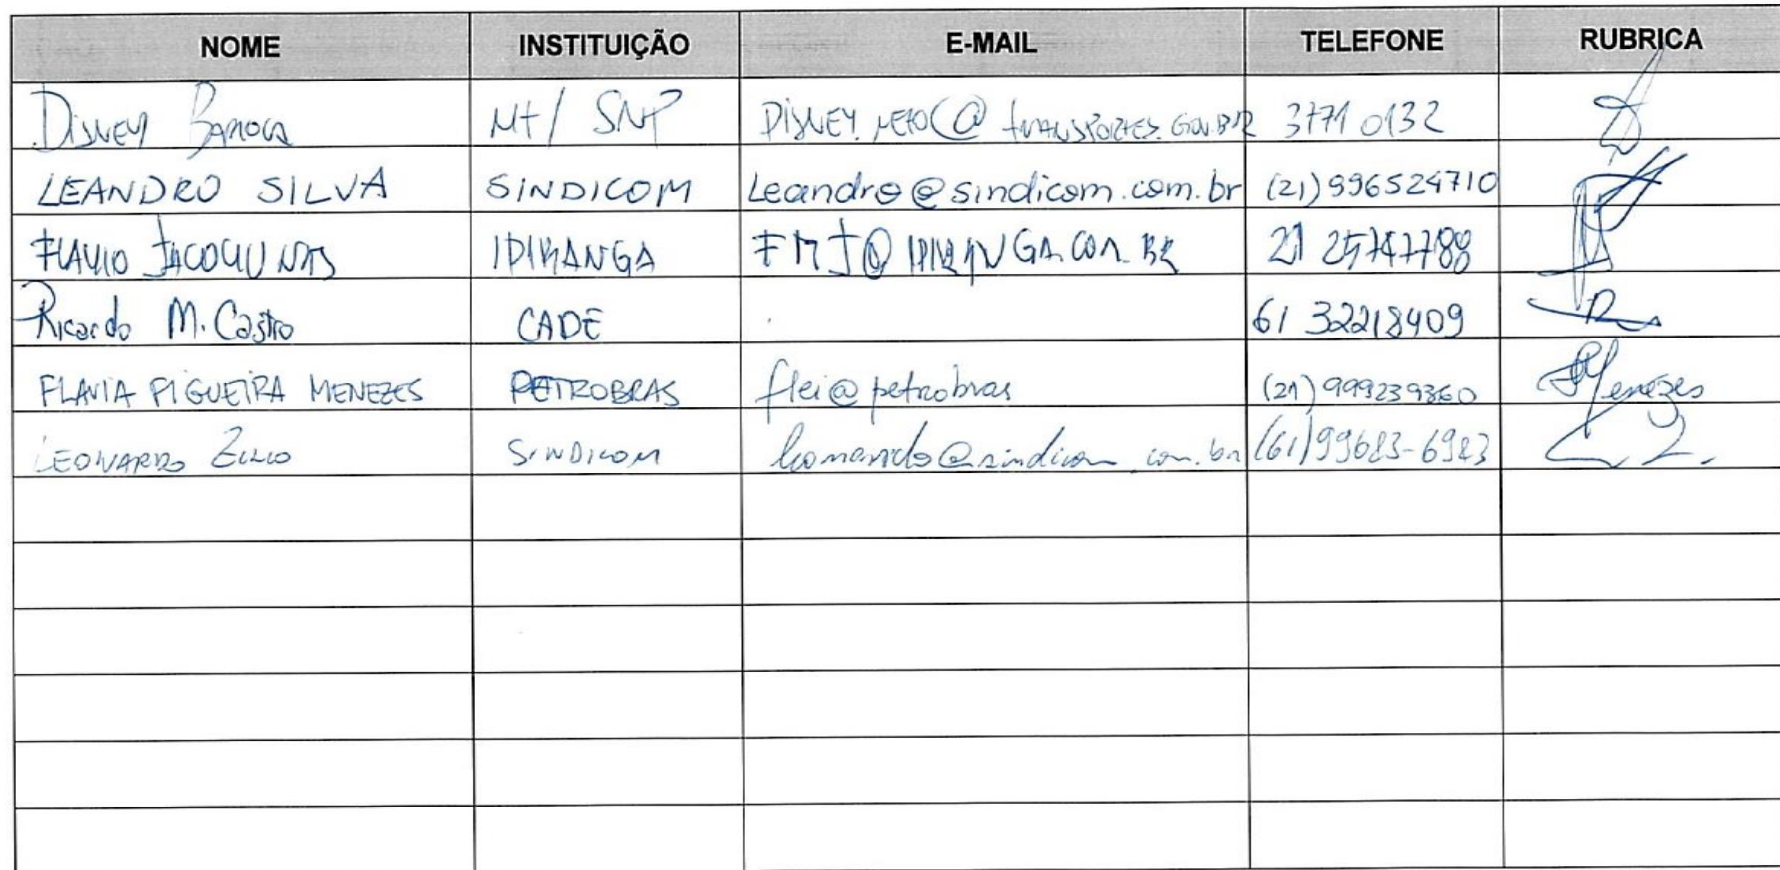 NOME INSTITUIÇÃO E-MAIL TELEFONE RUBRICA
Disney MT/ SNP DISNEY.NETO@transportes.gov.br 3771 0132
LEANDRO SILVA SINDICOM Leandro@sindicom.com.br (21)996524710
FLAVIO IPIRANGA FMJ@IPIRANGA.COM.BR 21 25747788
Ricardo M. Castro CADE 61 32218409
FLAVIA FIGUEIRA MENEZES PETROBRAS flei@petrobras (21) 999239360 Menezes
LEONARDO SINDICOM leonardo@sindicom.com.br (61)99683-6983